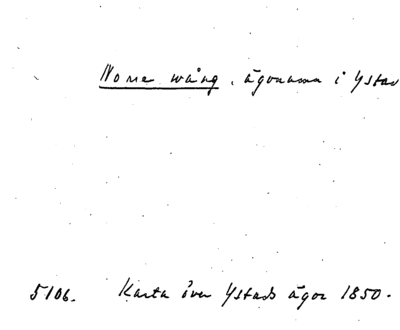 Norre wång, ägonamn i Ystad
5106. Karta över Ystads ägor 1850.